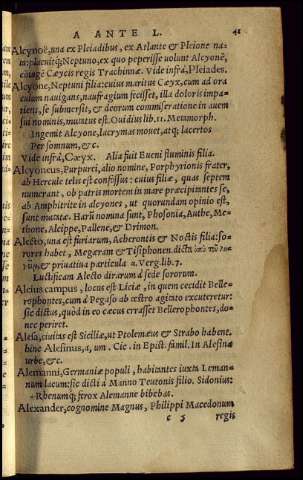 A ANTE L. 41
Alcynoë, una ex Pleiadibus, ex Atlante & Pleione na-
Neptuno, ex quo peperisse volunt Alcyonē,
Cæycis regis Trachinæ. Vide infrà, Pleiades.
Alcyone, Neptuni filia: cuius maritus Cæyx, cum ad ora
culum nauigans, naufragium fecisset, illa doloris impa-
tiens, se submersit, & deorum commiseratione in auem
sui nominis, mutatus est. Ouidius lib. 11. Metamorph.
Ingemit Alcyone, lacrymas mouet, atq; lacertos
Per somnum, &c.
Vide infrà, Cæyx. Alia fuit Eueni fluminis filia.
Alcyoneus, Purpurei, alio nomine, Porphyrionis frater,
ab Hercule telis est confossus: cuius filiæ, quas septem
numerant, ob patris mortem in mare præcipientes se,
ab Amphitrite in alcyones, ut quorundam opinio est,
sunt mutatæ. Harū nomina sunt, Phosonia, Authe, Me-
thone, Alcippe, Pallene, & Drimon.
Alecto, una est furiarum, Acherontis & Noctis filia: so-
rores habet, Megæram & Tisiphonen. dicta
& priuatiua particula α. Verg. lib. 7.
Luctificam Alecto dirarum à sede sororum.
Alcius campus, locus est Liciæ, in quem cecidit Belle-
rophontes, cum à Pegaso ab œstro agitato excuteretur:
sic dictus, quòd in eo cæcus errasset Bellerophontes, do-
nec periret.
Alesa, ciuitas est Siciliæ, ut Ptolemæus & Strabo habent.
hinc Alesinus, a, um. Cic. in Epist. famil. In Alesina
urbe, &c.
Alemanni, Germaniæ populi, habitantes iuxta Leman-
num lacum: sic dicti à Manno Teutonis filio. Sidonius:
Rhenumq; ferox Alemanne bibebat.
Alexander, cognomine Magnus, Philippi Macedonum
c 5 regis